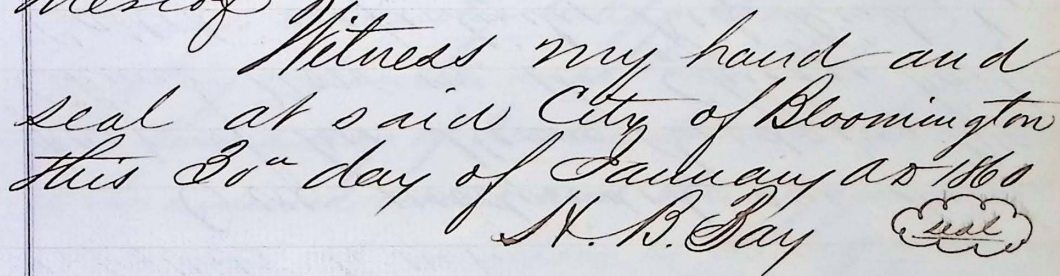 Witness my hand and
seal at said City of Bloomington
this 30th day of January AD 1860
H. B. Bay seal